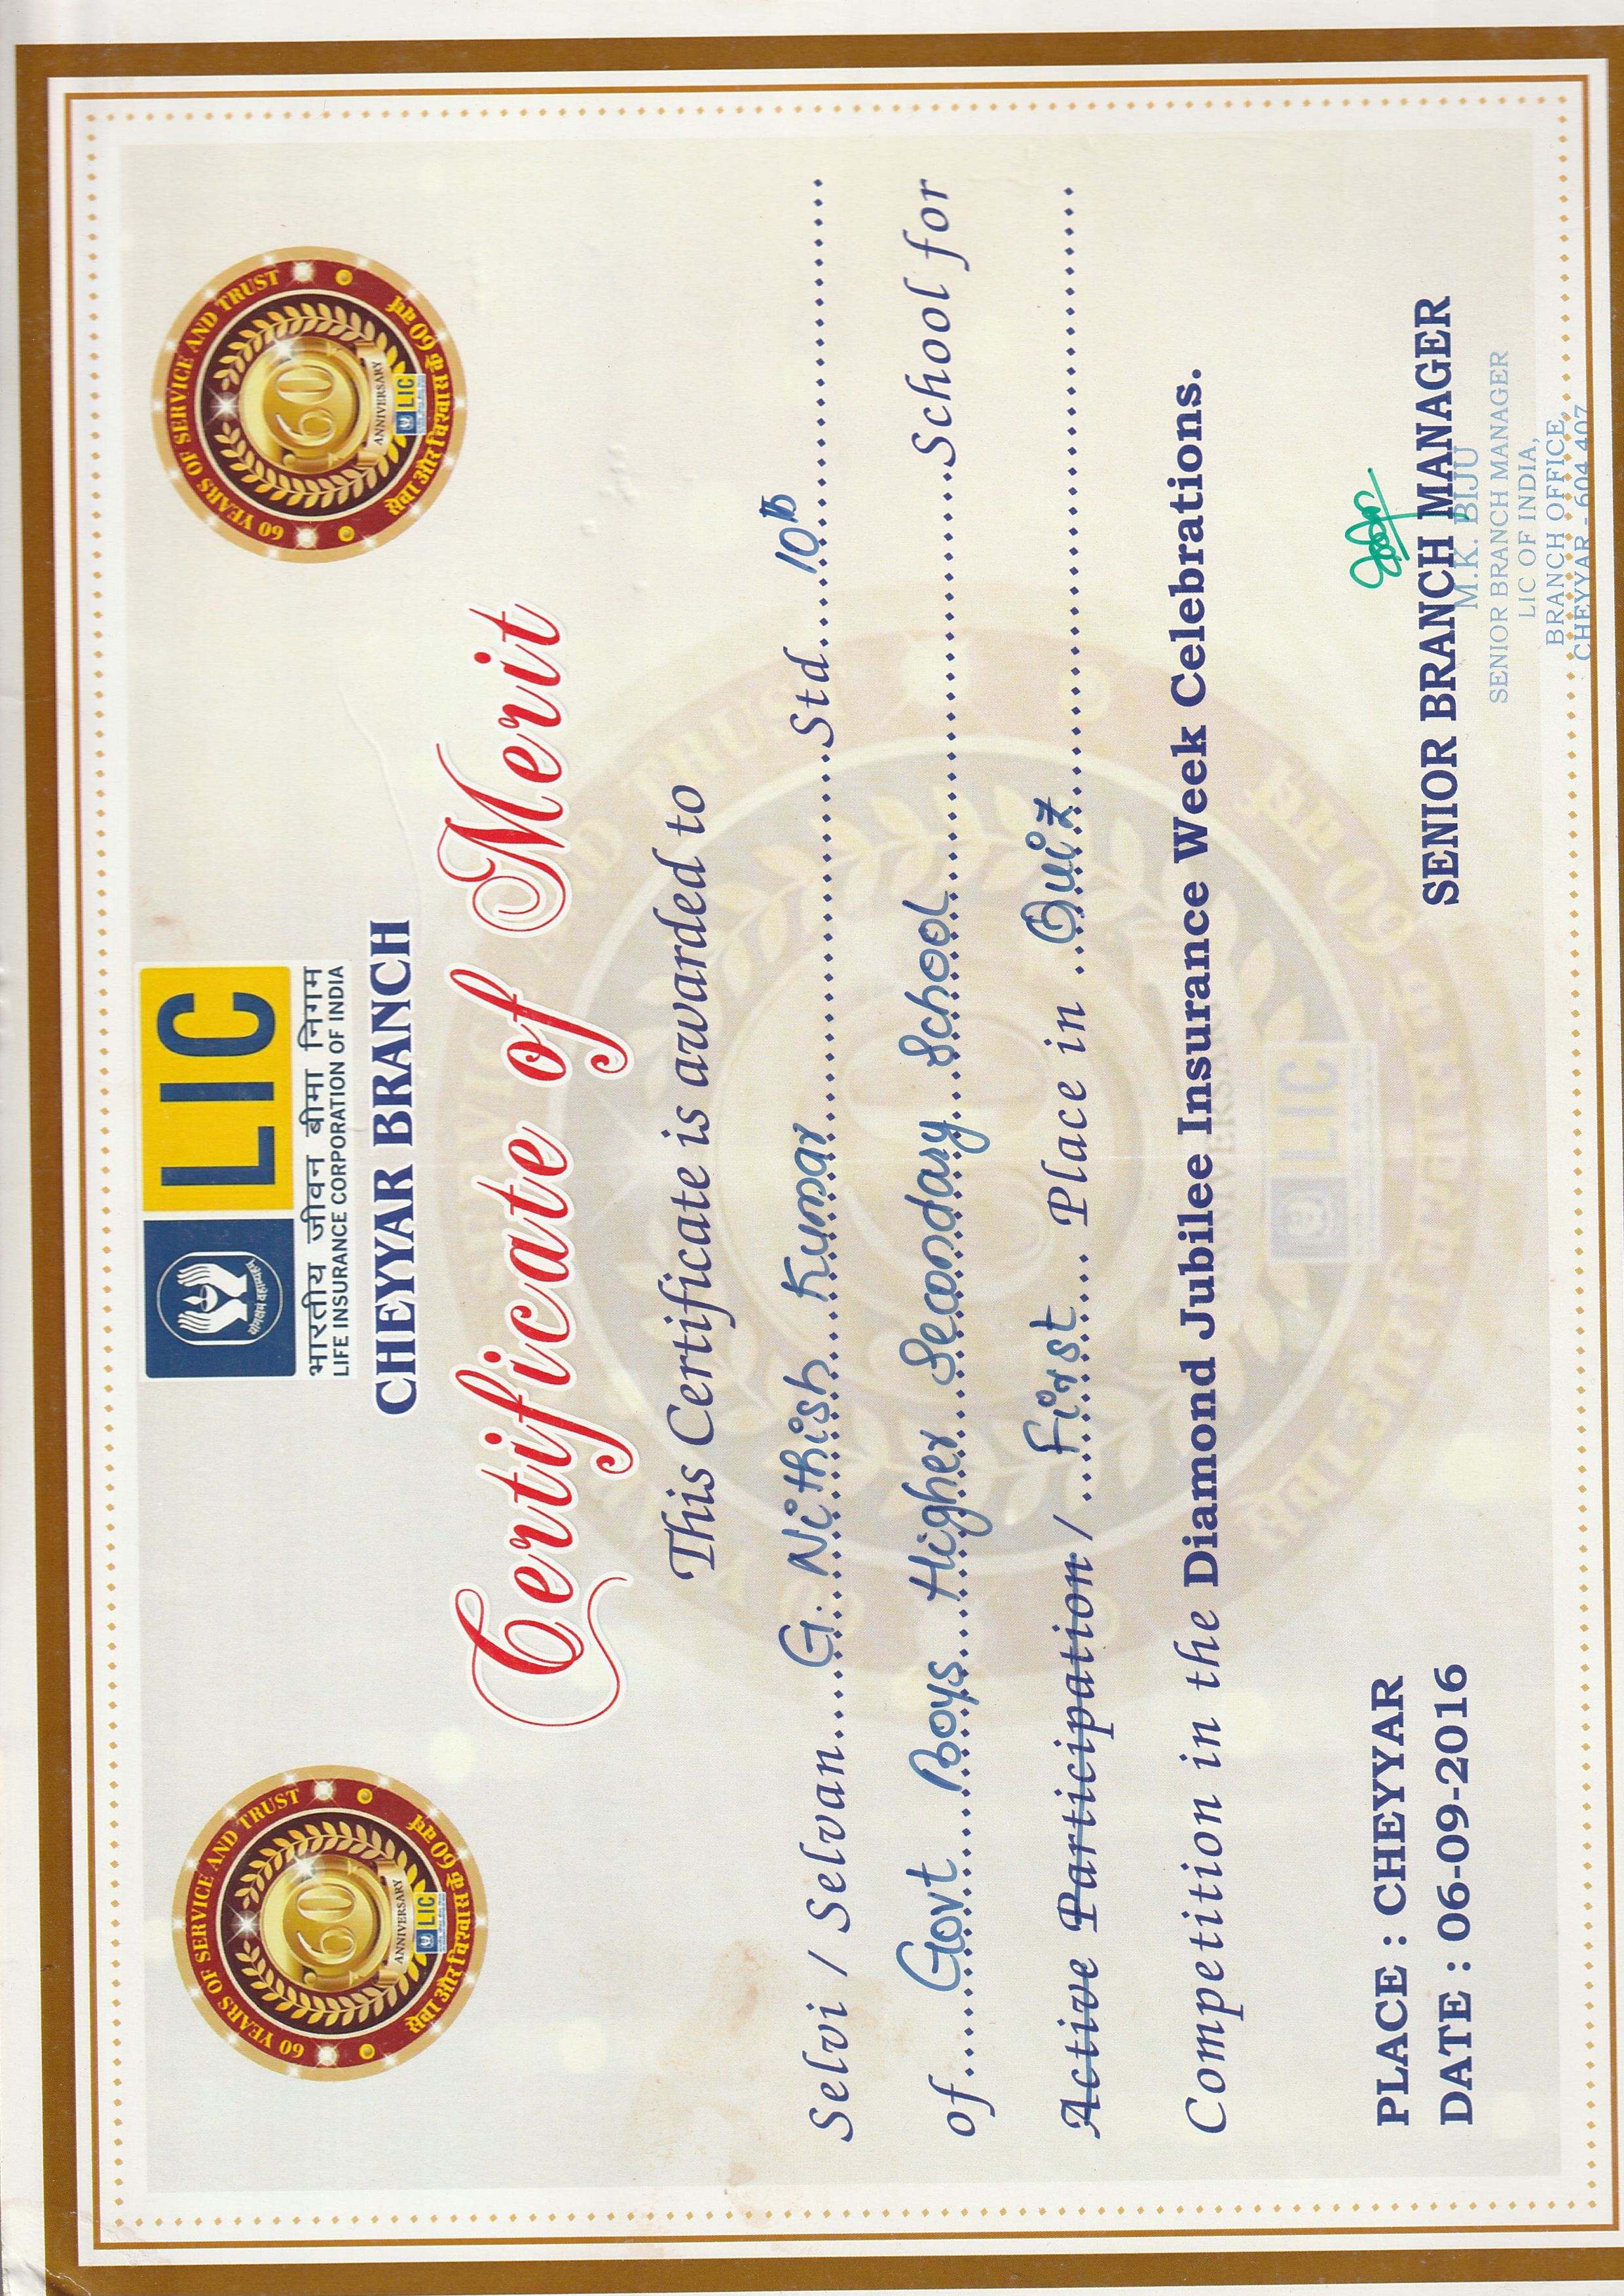 60 YEARS OF SERVICE AND TRUST
60
ANNIVERSARY
LIC
सेवा और विश्वास के 60 वर्ष
योगक्षेमं वहाम्यहम्
LIC
भारतीय जीवन बीमा निगम
LIFE INSURANCE CORPORATION OF INDIA
60 YEARS OF SERVICE AND TRUST
60
ANNIVERSARY
LIC
सेवा और विश्वास के 60 वर्ष
CHEYYAR BRANCH
Certificate of Merit
This Certificate is awarded to
Selvi / Selvan....G. Nithish Kumar....Std....10th....
of....Govt Boys Higher Secondary School....School for
Active Participation / ....First.... Place in ....Quiz....
Competition in the Diamond Jubilee Insurance Week Celebrations.
PLACE : CHEYYAR
DATE : 06-09-2016
SENIOR BRANCH MANAGER
M.K. BIJU
SENIOR BRANCH MANAGER
LIC OF INDIA,
BRANCH OFFICE,
CHEYYAR - 604 407